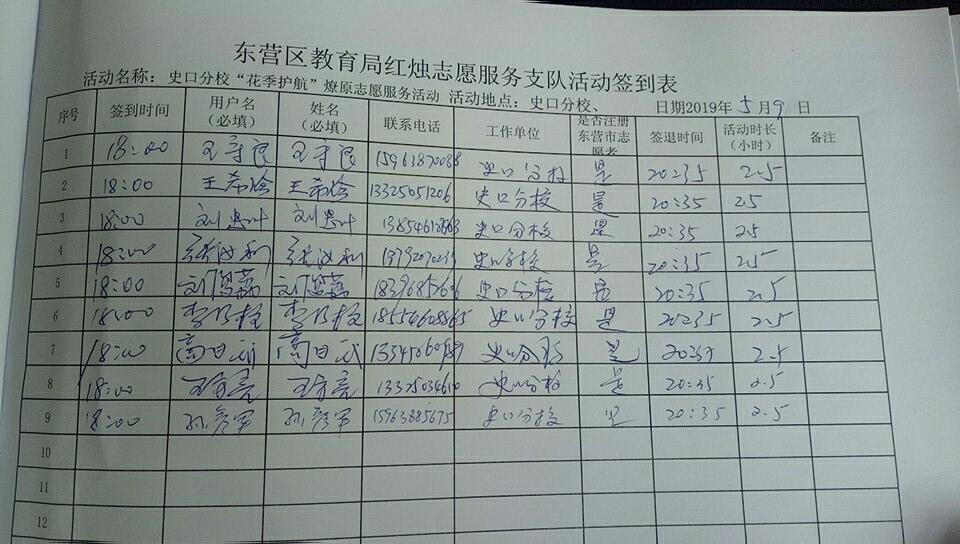 东营区教育局红烛志愿服务支队活动签到表
活动名称：史口分校“花季护航”燎原志愿服务活动 活动地点：史口分校、 日期2019年5月9日
序号 签到时间 用户名（必填） 姓名（必填） 联系电话 工作单位 是否注册东营市志愿者 签退时间 活动时长（小时） 备注
1 18:00 王守民 王守民 史口分校 是 20:35 2.5
2 18:00 王希 王希 13325051206 史口分校 是 20:35 2.5
3 18:00 刘忠叶 刘忠叶 史口分校 是 20:35 2.5
4 18:00 史口分校 是 20:35 2.5
5 18:00 史口分校 是 20:35 2.5
6 18:00 李 李 18554608865 史口分校 是 20:35 2.5
7 18:00 高日 高日 史口分校 是 20:35 2.5
8 18:00 史口分校 是 20:35 2.5
9 18:00 孙彦军 孙彦军 15963885675 史口分校 是 20:35 2.5
10
11
12